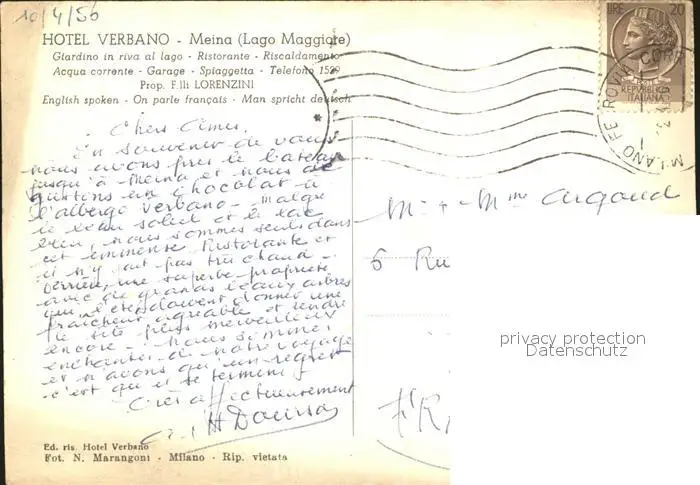 10/4/56
HOTEL VERBANO - Meina (Lago Maggiore)
Giardino in riva al lago - Ristorante - Riscaldamento
Acqua corrente - Garage - Spiaggetta - Telefono 1529
Prop. F.lli LORENZINI
English spoken - On parle français - Man spricht deutsch
Chers Amis,
En souvenir de vous
nous avons pris le bateau
jusqu'à Meina et nous dé
gustons un chocolat à
l'albergo Verbano - Malgré
le beau soleil et le lac
bleu, nous sommes seuls dans
cet imminente Ristorante et
il n'y fait pas très chaud -
Derrière, une superbe propriété
avec de grands beaux arbres
qui, l'été doivent donner une
fraîcheur agréable et rendre
le site plus merveilleux
encore - Nous sommes
enchantés de notre voyage
et n'avons qu'un regret
c'est qu'il se termine !
Très affectueusement
Ed. ris. Hotel Verbano
Fot. N. Marangoni - Milano - Rip. vietata
LIRE 20
REPUBBLICA
ITALIANA
MILANO FERROVIA CORR
Mr + Mme Argoud
6 Ru
privacy protection
Datenschutz